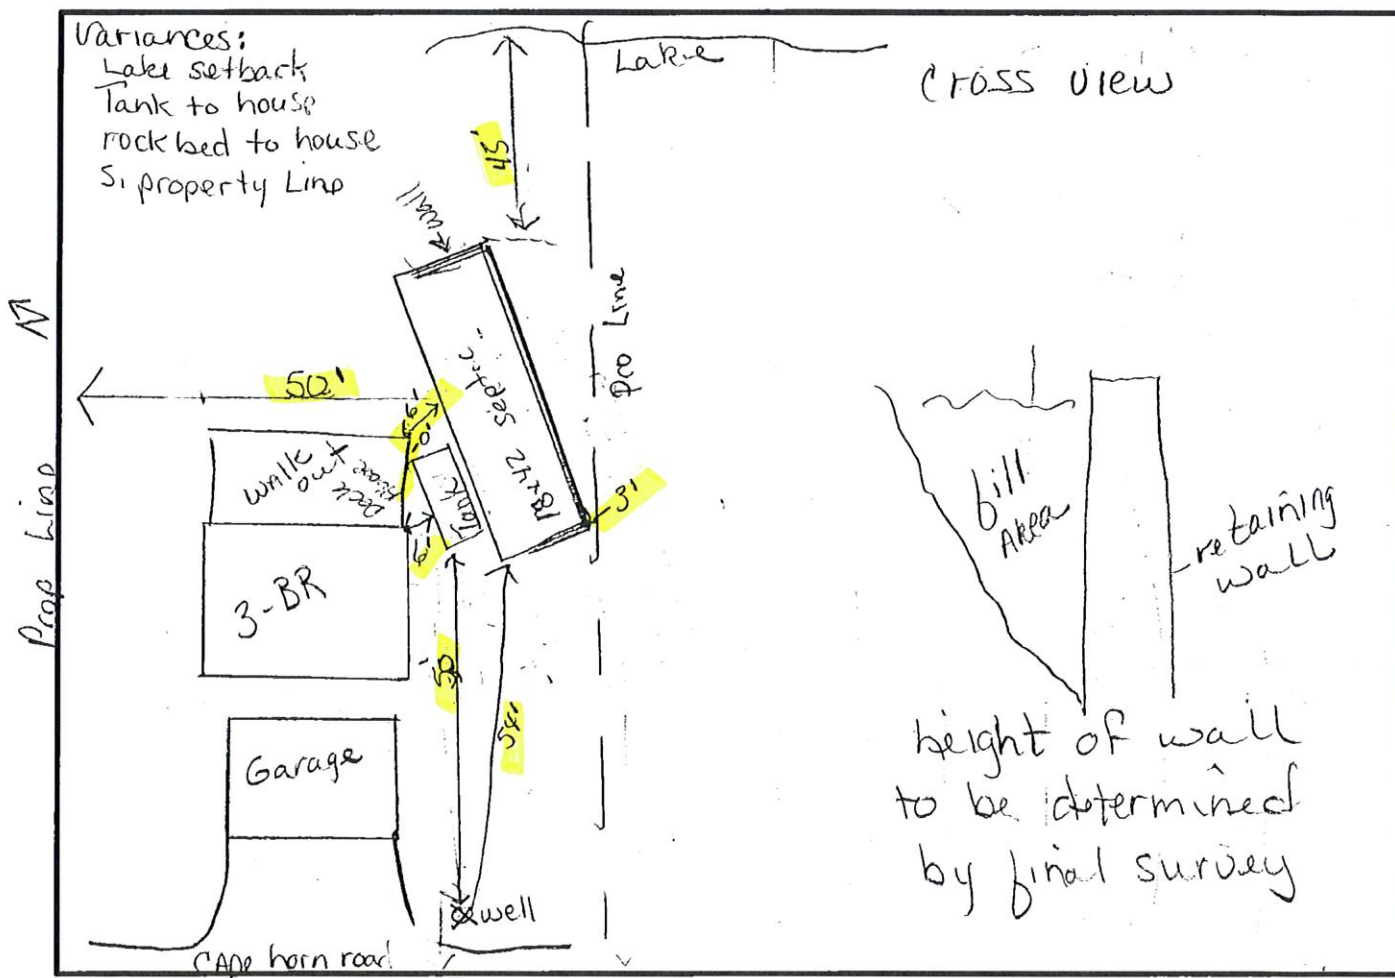 Variances:
Lake setback
Tank to house
rock bed to house
S. property Line
Lake
Cross view
45'
wall
N
Pro Line
50'
6'
18x42 septic
Walk
out +
Deck
Above
Tank
3'
6'
Prop Line
3-BR
50'
54'
Garage
well
Cape horn road
fill
Area
retaining
wall
height of wall
to be determined
by final survey